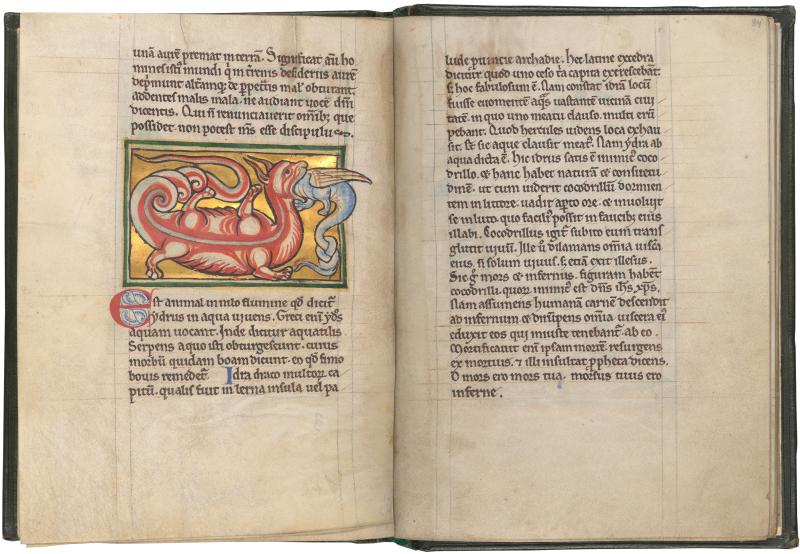 unā aurē premat in terrā. Significat aūt ho
mines isti᾽ mundi q̇ in t̄renis desideriis aurē
dep̄munt altāmq; de p̱pet̄tis mal᾽ obturant.
addentes malis mala. ne audiant uocē dn̄i
dicentis. Qui n̄ renunciauerit om̄ib; que
possidet. non potest m̄s esse discipulus.
Est animal in nilo flumine qd̄ dicit᾽
ydrus in aqua uiuens. Greci eni᾽ ydōs
aquam uocant. Inde dicitur aquatilis
Serpens a quo icti obturgescunt. cuius
morbū quidam boam dicunt. eo qd̄ fimo
bouis remedet᾽. Idra draco multoꝝ ca
pitū. qualis fuit in lerna insula uel pa
84
lude ꝓuincie archadie. Hec latine excedra
dicitur. quod uno ceso t᾽a capita excrescebāt.
s; hoc fabulosum ē. Nam constat idrā locū
fuisse euomentē aq̄s uastantē uicinā ciui
tatē. in quo uno meatu clauso. multi erū
pebant. Quod hercules uidens loca exhau
sit. & sic aque clausit meat᾽. Nam ydra ab
aqua dicta ē. Hic idrus satis ē inimic᾽ coco
drillo. & hanc habet naturā & consuetu
dinē. ut cum uiderit cocodrillū dormien
tem in littore. uadit aꝑto ore. & inuoluit
se in luto. quo facili᾽ possit in faucib; eius
illabi. Cocodrillus igit᾽ subito eum trans
glutit uiuū. Ille ū dilanians om̄ia uiscā
eius. n̄ solum uiuus. s; etiā exit illesus.
Sic g̊ mors & infernus. figuram habent
cocodrilli. quoꝝ inimic᾽ est dn̄s ih̄s xp̄s.
Nam assumens humanā carnē descendit
ad infernum & dirūpens om̄ia uiscera ei᾽
eduxit eos qui iniuste tenebant᾽ ab eo.
Mortificauit eni᾽ ipsam mortē resurgens
ex mortuis. & illi insultat ꝓpheta dicens.
O mors ero mors tua. morsus tuus ero
inferne.